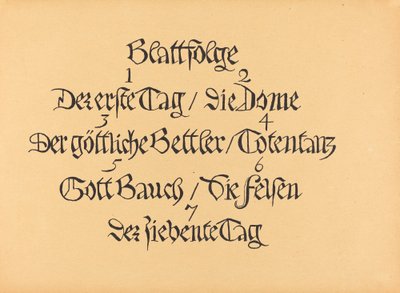 Blattfolge
1 2
Der erste Tag / Die Dome
3 4
Der göttliche Bettler / Totentanz
5 6
Gott Bauch / Die Felsen
7
Der siebente Tag